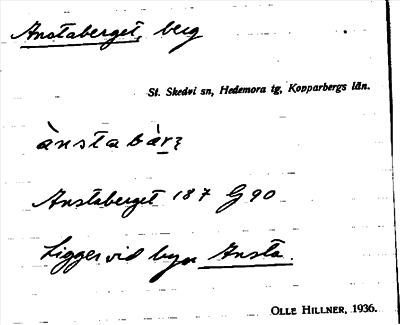 Anstaberget, berg
St. Skedvi sn, Hedemora tg, Kopparbergs län.
ànstabàrʒ
Anstaberget 187 G 90
Ligger vid byn Ansta.
OLLE HILLNER, 1936.